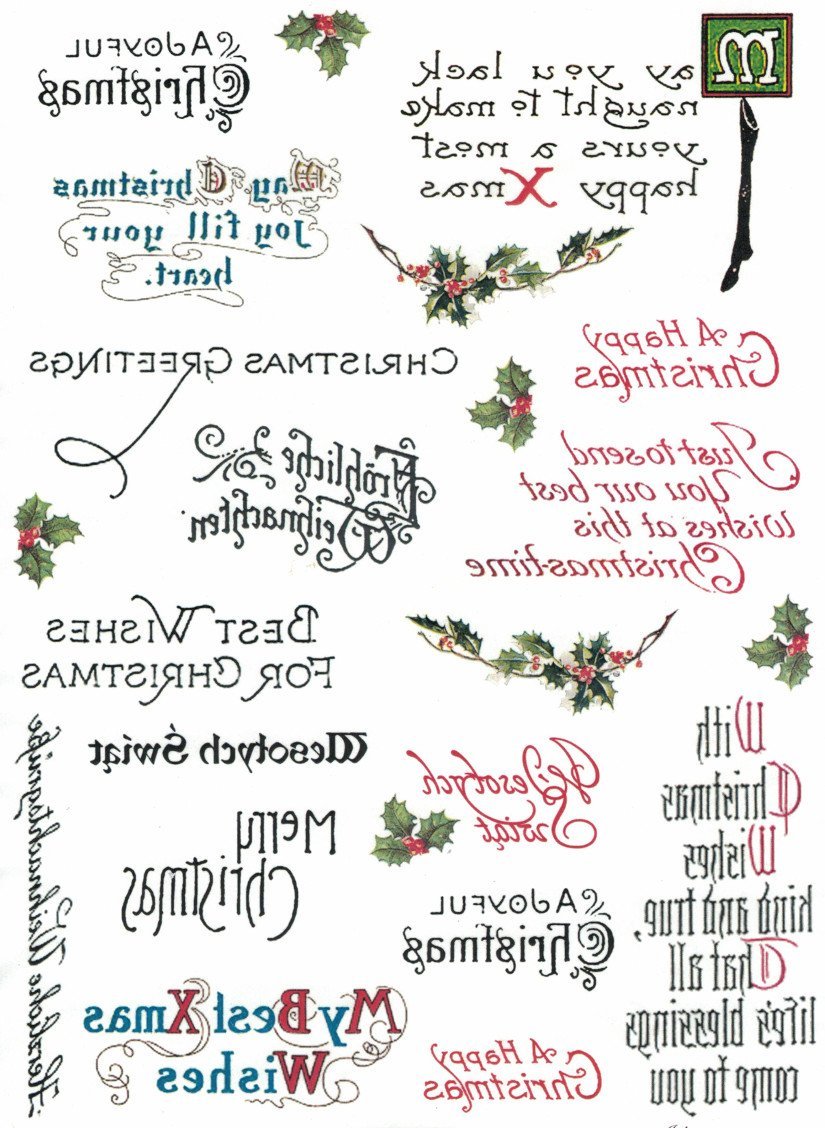 A JOYFUL
Christmas
May you lack
naught to make
yours a most
happy Xmas
May Christmas
joy fill your
heart.
CHRISTMAS GREETINGS
A Happy
Christmas
Fröhliche
Weihnachten
Just to send
You our best
wishes at this
Christmas-time
BEST WISHES
FOR CHRISTMAS
Wesołych Świąt
Wesołych
Świąt
With
Christmas
Wishes
kind and true,
That all
life's blessings
come to you
Merry
Christmas
A JOYFUL
Christmas
My Best Xmas
Wishes
A Happy
Christmas